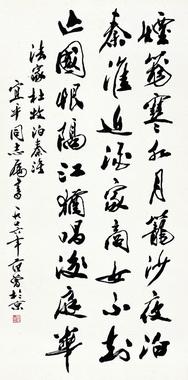 煙籠寒水月籠沙夜泊
秦淮近酒家商女不知
亡國恨隔江猶唱後庭華
法家杜牧泊秦淮
宜平同志屬書 一九七六年 范曾於京